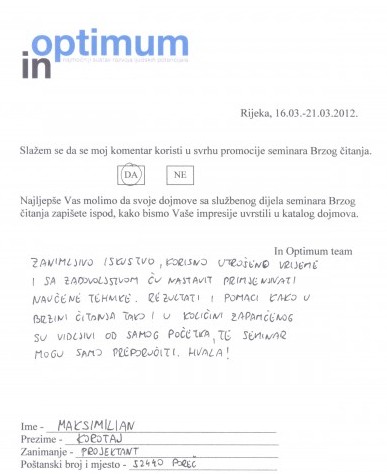 in optimum
Rijeka, 16.03.-21.03.2012.
Slažem se da se moj komentar koristi u svrhu promocije seminara Brzog čitanja.
DA NE
Najljepše Vas molimo da svoje dojmove sa službenog dijela seminara Brzog
čitanja zapišete ispod, kako bismo Vaše impresije uvrstili u katalog dojmova.
In Optimum team
ZANIMLJIVO ISKUSTVO, KORISNO UTROŠENO VRIJEME
I SA ZADOVOLJSTVOM ĆU NASTAVIT PRIMJENJIVATI
NAUČENE TEHNIKE. REZULTATI I POMACI KAKO U
BRZINI ČITANJA TAKO I U KOLIČINI ZAPAMĆENOG
SU VIDLJIVI OD SAMOG POČETKA, TE SEMINAR
MOGU SAMO PREPORUČITI. HVALA!
Ime - MAKSIMILIAN
Prezime - KOROTAJ
Zanimanje - PROJEKTANT
Poštanski broj i mjesto - 52440 POREČ